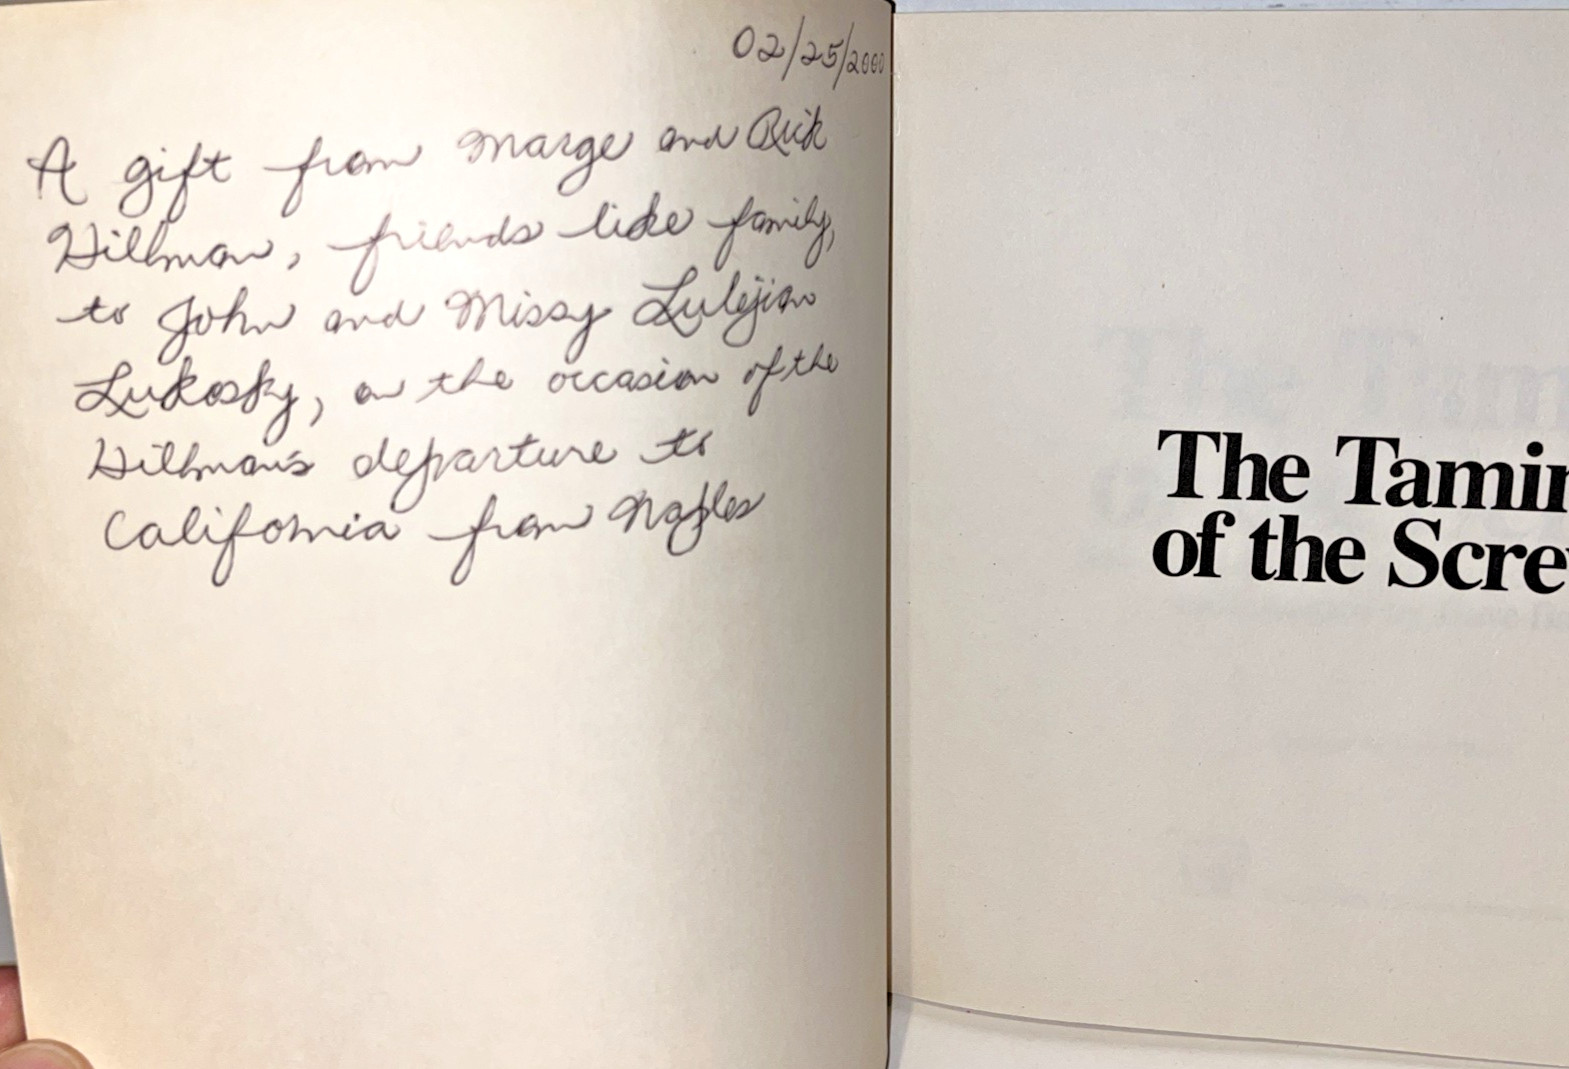 02/25/2000
A gift from Marge and Rick
Hillman, friends like family,
to John and Missy Lulejian
Lukosky, on the occasion of the
Hillman's departure to
California from Naples
The Tamin
of the Scre